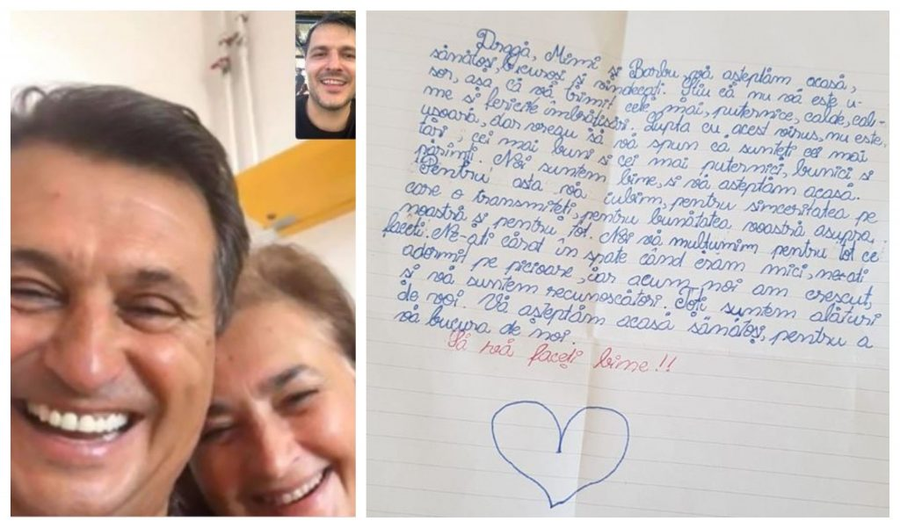 Dragă, Mimi și Barbu, vă așteptăm acasă,
sănătoși, bucuroși și vindecați. Știu că nu vă este u-
șor, așa că vă trimit cele mai, puternice, calde, cali-
me și fericite îmbrățișări. Lupta cu acest virus, nu este,
ușoară, dar vreau să vă spun că sunteți cei mai
tari, cei mai buni și cei mai puternici, bunici și
părinți. Noi suntem bine, și vă așteptăm acasă.
Pentru asta vă iubim, pentru sinceritatea pe
care o transmiteți, pentru bunătatea voastră asupra
noastră și pentru tot. Noi vă mulțumim pentru tot ce
faceți. Ne-ați cărat în spate când eram mici, ne-ați
adormit pe picioare, iar acum noi am crescut,
și vă suntem recunoscători. Toți suntem alături
de voi. Vă așteptăm acasă sănătoși, pentru a
vă bucura de noi.
Să vă faceți bine!!